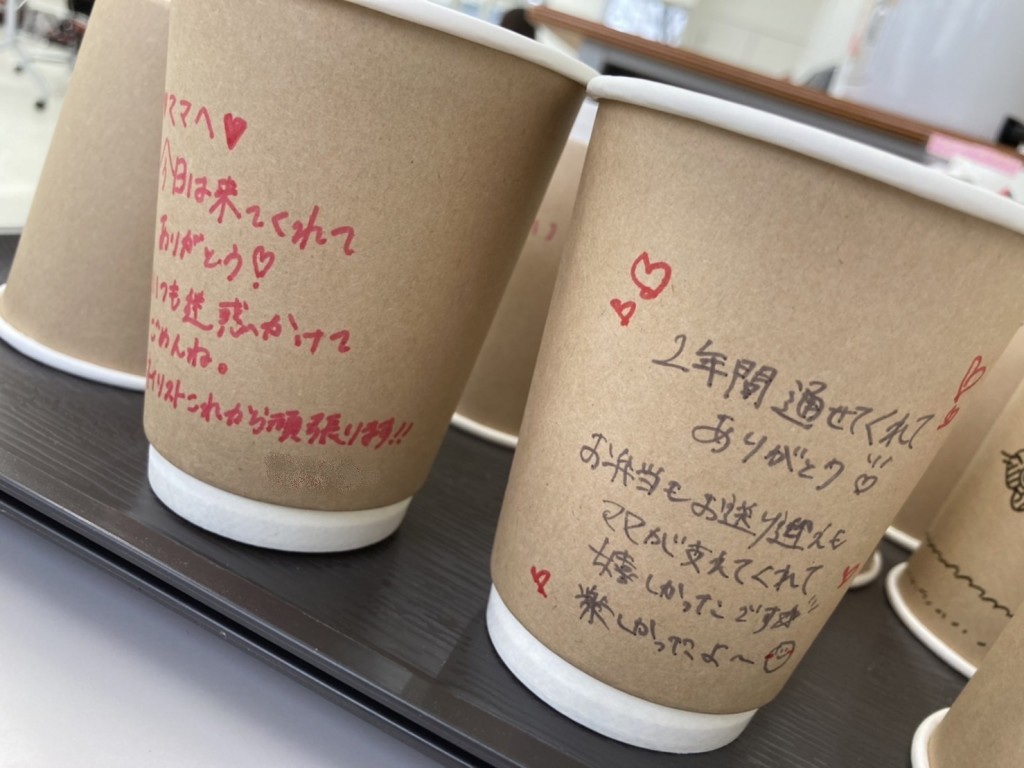 ママへ♥
今日は来てくれて
ありがとう♡
いつも迷惑かけて
ごめんね。
イリストこれから頑張ります!!
2年間通せてくれて
ありがとう♡
お弁当もお送り迎えも
ママが支えてくれて
嬉しかったです
楽しかったよ〜